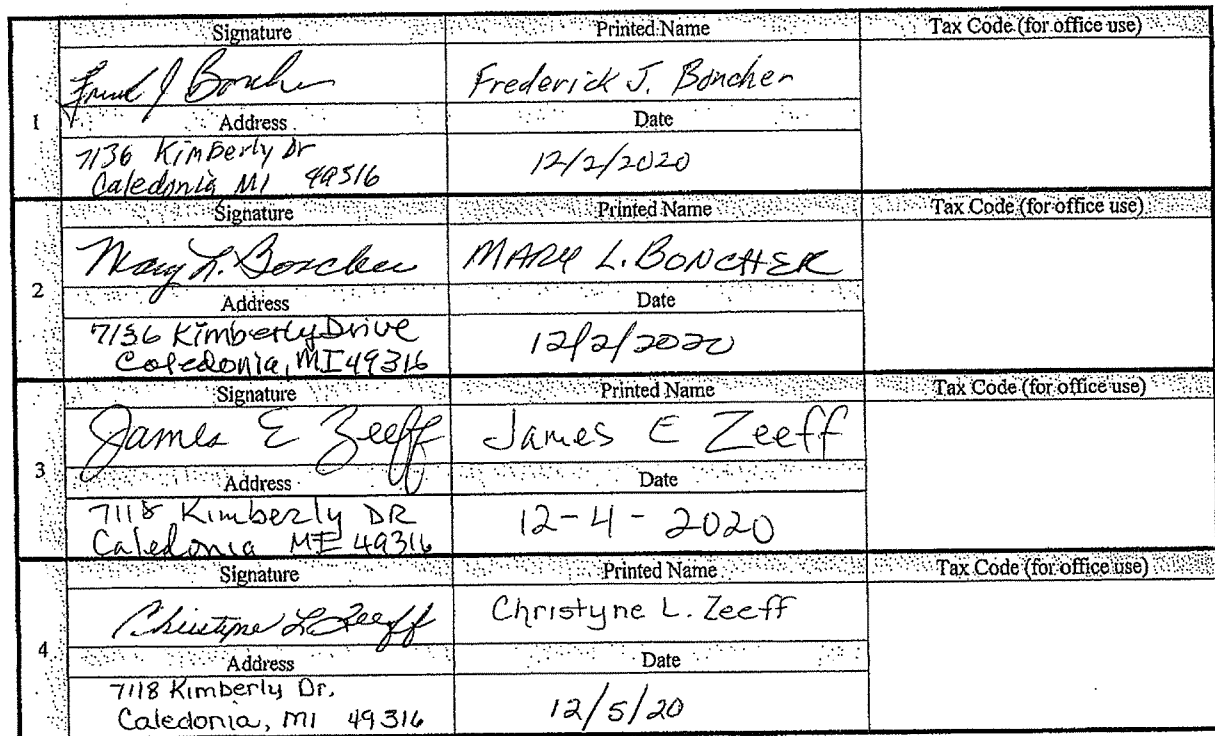 Signature Printed Name Tax Code (for office use)
1
Fred J Boncher Frederick J. Boncher
Address Date
7136 Kimberly Dr 12/2/2020
Caledonia MI 49316
Signature Printed Name Tax Code (for office use)
2
Mary L. Boncher MARY L. BONCHER
Address Date
7136 Kimberly Drive 12/2/2020
Caledonia, MI 49316
Signature Printed Name Tax Code (for office use)
3
James E Zeeff James E Zeeff
Address Date
7118 Kimberly DR 12-4-2020
Caledonia MI 49316
Signature Printed Name Tax Code (for office use)
4
Christyne L Zeeff Christyne L. Zeeff
Address Date
7118 Kimberly Dr. 12/5/20
Caledonia, MI 49316